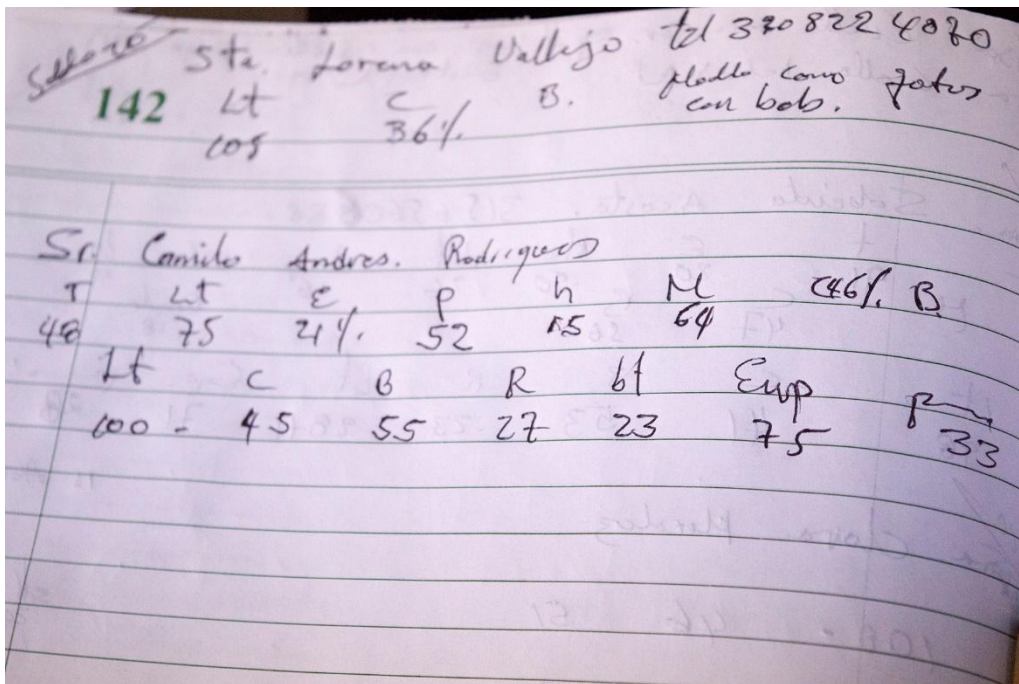 Sta. Lorena Vallejo tel 3208224070
142 Lt C B. Modlo como fotos
con bob.
108 36%
Sr. Camilo Andres. Rodrigues
T Lt E P h M C46%. B
48 75 21%. 52 15 64
Lt C B R bt Eup
100 - 45 55 27 23 75 33